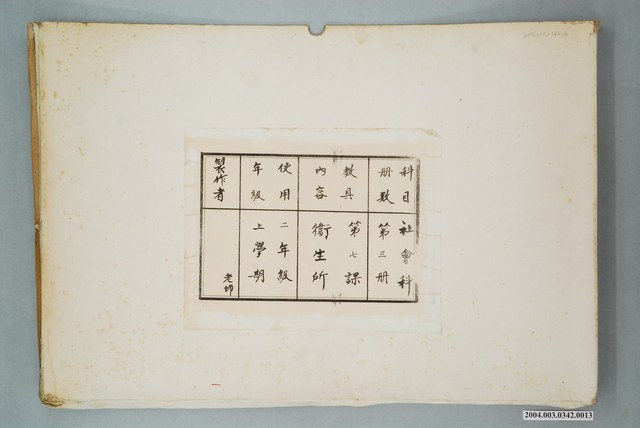 科目
冊數
社會科
第三冊
教具
內容
第七課
衛生所
使用
年級
二年級
上學期
製作者
老師
2004.003.0342.0013